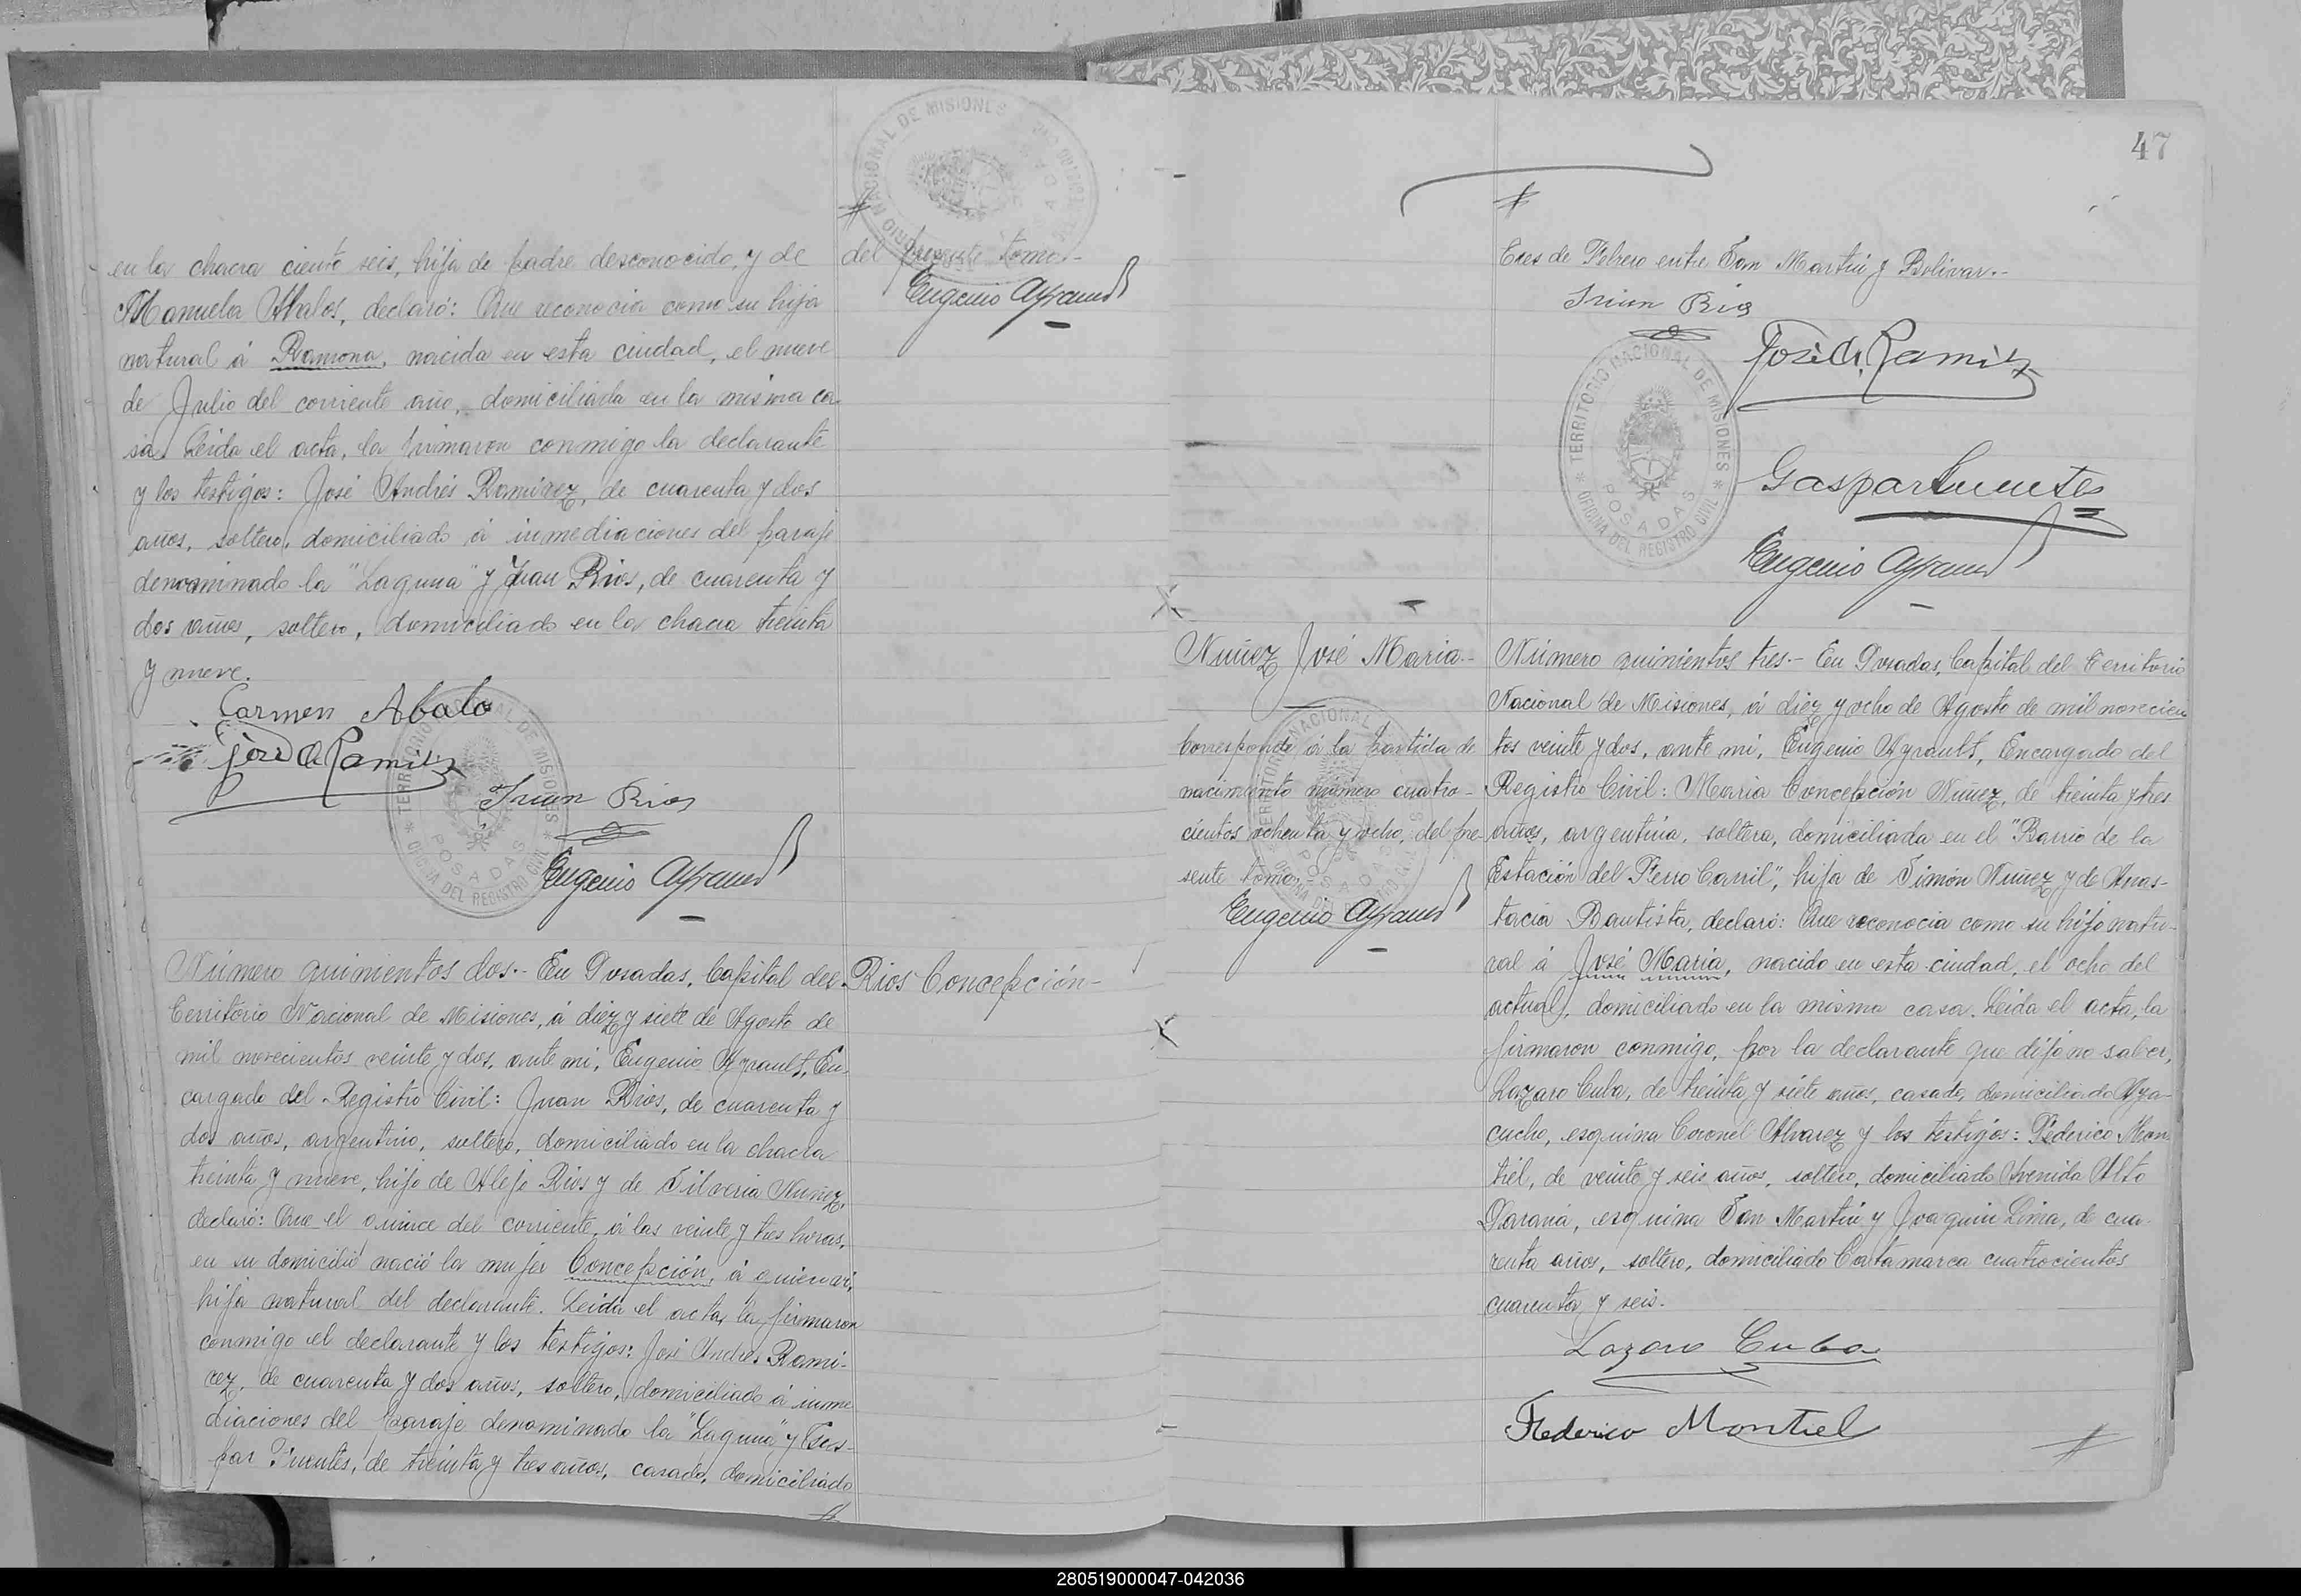 en la chacra ciento seis, hija de padre desconocido y de
Manuela Abalos, declaró: Que reconocia como su hija
natural á Ramona, nacida en esta ciudad, el nueve
de Julio del corriente año, domiciliada en la misma ca-
sa. Leida el acta, la firmaron conmigo la declarante
y los testigos: José Andrés Ramirez, de cuarenta y dos
años, soltero, domiciliado á inmediaciones del paraje
denominado la "Laguna" y Juan Rios, de cuarenta y
dos años, soltero, domiciliado en la chacra treinta
y nueve.
Carmen Abalo
José A Ramirez
Juan Rios
Eugenio Ayrault
TERRITORIO NACIONAL DE MISIONES
POSADAS
OFICINA DEL REGISTRO CIVIL
Número quinientos dos.- En Posadas, Capital del
Territorio Nacional de Misiones, á diez y siete de Agosto de
mil novecientos veinte y dos, ante mi, Eugenio Ayrault, En-
cargado del Registro Civil: Juan Rios, de cuarenta y
dos años, argentino, soltero, domiciliado en la chacra
treinta y nueve, hijo de Alejo Rios y de Silveria Nuñez,
declaró: Que el quince del corriente, á las veinte y tres horas,
en su domicilio nació la mujer Concepción, á quien vi,
hija natural del declarante. Leida el acta, la firmaron
conmigo el declarante y los testigos: José Andrés Rami-
rez, de cuarenta y dos años, soltero, domiciliado á inme
diaciones del paraje denominado la "Laguna" y Gas-
par Fuentes, de treinta y tres años, casado, domiciliado
TERRITORIO NACIONAL DE MISIONES
del presente tomo.-
Eugenio Ayrault
Rios Concepción-
47
Tres de Febrero entre San Martin y Bolivar.-
Juan Rios
José A. Ramirez
Gaspar Fuentes
Eugenio Ayrault
TERRITORIO NACIONAL DE MISIONES
POSADAS
OFICINA DEL REGISTRO CIVIL
Nuñez José Maria.-
Corresponde á la partida de
nacimiento número cuatro-
cientos ochenta y ocho, del pre-
sente tomo.-
Eugenio Ayrault
Número quinientos tres.- En Posadas, Capital del Territorio
Nacional de Misiones, á diez y ocho de Agosto de mil novecien
tos veinte y dos, ante mi, Eugenio Ayrault, Encargado del
Registro Civil: Maria Concepción Nuñez, de treinta y tres
años, argentina, soltera, domiciliada en el "Barrio de la
Estación del Ferro Carril", hija de Simón Nuñez y de Anas-
tacia Bautista, declaró: Que reconocia como su hijo natu-
ral á José Maria, nacido en esta ciudad, el ocho del
actual, domiciliado en la misma casa. Leida el acta, la
firmaron conmigo, por la declarante que dijo no saber,
Lazaro Cuba, de treinta y siete años, casado, domiciliado Aya-
cucho, esquina Coronel Alvarez y los testigos: Federico Mon
tiel, de veinte y seis años, soltero, domiciliado Avenida Alto
Paraná, esquina San Martin y Joaquin Lima, de cua-
renta años, soltero, domiciliado Catamarca cuatrocientos
cuarenta y seis.
Lazaro Cuba
Federico Montiel
280519000047-042036